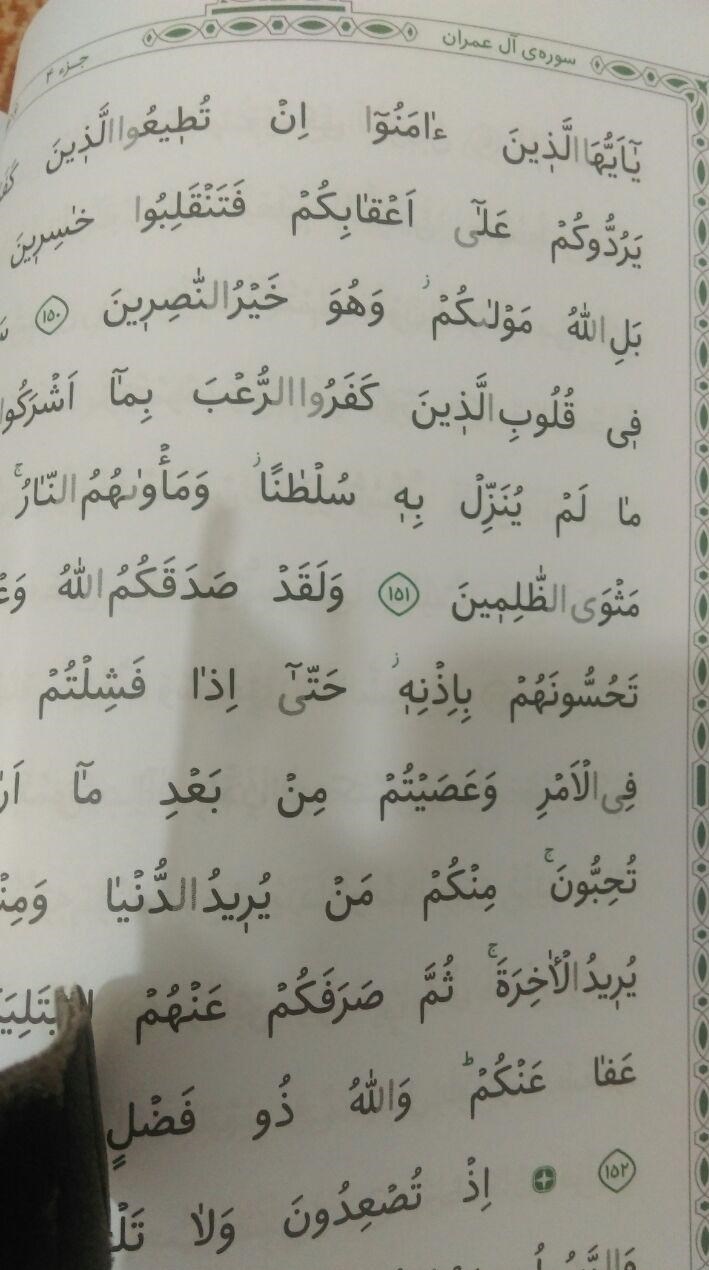 سوره‌ی آل عمران
جزء ۴
يٰٓاَيُّهَا الَّذٖينَ ءٰامَنُوٓا اِنْ تُطٖيعُوا الَّذٖينَ
يَرُدُّوكُمْ عَلٰٓى اَعْقٰابِكُمْ فَتَنْقَلِبُوا خٰسِرٖينَ
بَلِ اللّٰهُ مَوْلٰىكُمْ ۖ وَهُوَ خَيْرُ النّٰصِرٖينَ ١٥٠
فٖى قُلُوبِ الَّذٖينَ كَفَرُوا الرُّعْبَ بِمٰٓا اَشْرَكُوا
مٰا لَمْ يُنَزِّلْ بِهٖ سُلْطٰنًا ز وَمَأْوٰىهُمُ النّٰارُ ۚ
مَثْوَى الظّٰلِمٖينَ ١٥١ وَلَقَدْ صَدَقَكُمُ اللّٰهُ
تَحُسُّونَهُمْ بِاِذْنِهٖ ز حَتّٰىٓ اِذٰا فَشِلْتُمْ
فِى الْاَمْرِ وَعَصَيْتُمْ مِنْ بَعْدِ مٰٓا
تُحِبُّونَ ۚ مِنْكُمْ مَنْ يُرٖيدُ الدُّنْيٰا
يُرٖيدُ الْأٰخِرَةَ ۚ ثُمَّ صَرَفَكُمْ عَنْهُمْ
عَفٰا عَنْكُمْ ط وَاللّٰهُ ذُو فَضْلٍ
١٥٢ اِذْ تُصْعِدُونَ وَلٰا